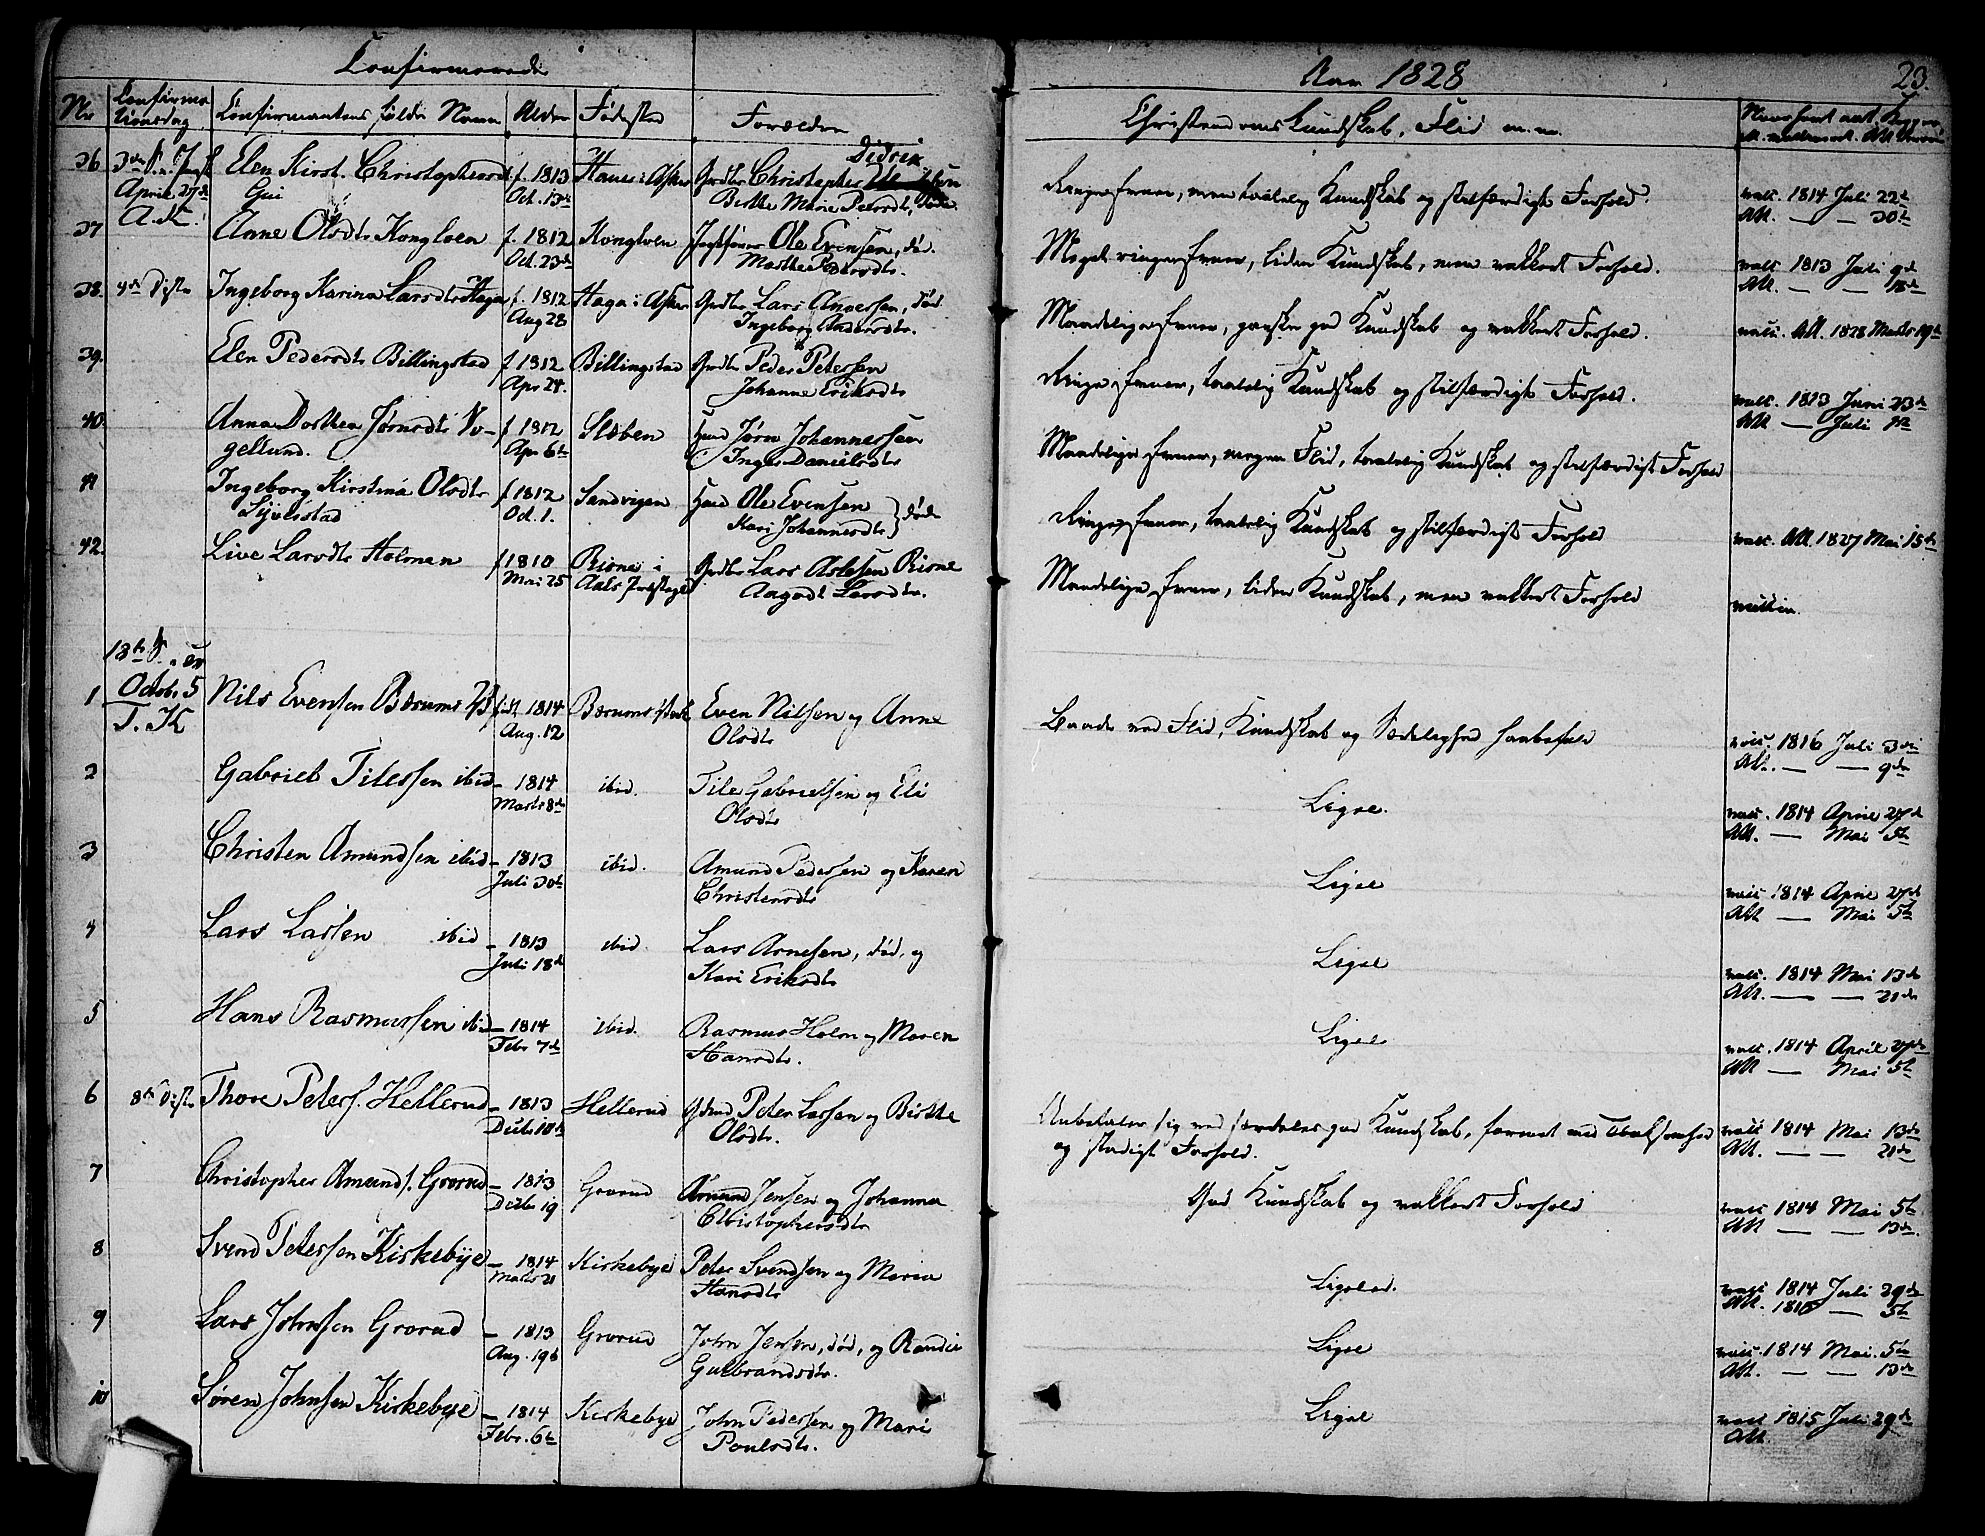 Confirmerede
Aar 1828
23.
No
Confirma
tionsdag
Confirmantens fulde Navn
Alder
Fødested
Forældre
Christendoms Kundskab, Flid m.m.
36
April 27de
A. K.
Elen Kirst. Christophersdt
Gui
f. 1813
Oct. 13de
i Asker
Christopher
Didrik
Birthe Marie Pedersdt, døde.
Ringe Evner, men taalelig Kundskab og stilfærdigt Forhold.
vacc. 1814 Juli 22de
Att. — — 30te
37
Anne Olsdtr Konglven
f. 1812
Oct. 23de
Konglven
Ole Evensen, død.
Marthe Pedersdtr.
Meget ringe Evner, liden Kundskab, men vakkert Forhold.
vacc. 1813 Juli 9de
Att. — — 18de
38.
4de Distr
Ingeborg Karina Larsdtr Haga
f. 1812
Aug 28
Haga i Asker
Lars Andersen, død.
Ingeborg Andersdtr.
Maadelige Evner, ganske god Kundskab og vakkert Forhold.
vacc. Att. 1828 Marts 19de
39.
Elen Pedersdtr Billingstad
f 1812
Apr 24.
Billingstad
Peder Petersen
Johanne Eriksdtr
Ringe Evner, taalelig Kundskab og stilfærdigt Forhold.
vacc. 1813 Juni 23de
Att — Juli
40.
Anne Dorthea Jørnsdtr Vo-
gellund.
f 1812
Apr 6te
Slæben
Huusd Jørn Johannessen
Inger Danielsdtr
Maadelige Evner, megen Flid, taalelig Kundskab og stilfærdigt Forhold
41
Ingeborg Kirstina Olsdtr
Sijverstad
f 1812
Oct. 1.
Sandvigen
Huusd Ole Evensen
Kari Johannesdtr } døde
Ringe Evner, taalelig Kundskab og stilfærdigt Forhold
vacc. Att. 1827 Mai 15de
42.
Live Larsdtr Holmen
f 1810
Mai 25
Risne i
Aals Præstegjeld
Lars Aslesen Risne
Aagodt Larsdtr.
Maadelige Evner, liden Kundskab, men vakkert Forhold
18de S. e. Tr
Octob. 5
T. K
1
Nils Evensen Bærums V
født 1814
Aug. 12
Bærums Værk
Even Nilsen og Anne
Olsdtr
Baade ved Flid, Kundskab og Sædelighed haabefuld
vacc. 1816 Juli 3die
Att. — — 9de
2
Gabriel Tilessen ibid
— 1814
Marts 8de
ibid.
Tile Gabrielsen og Eli
Olsdtr
Ligesaa.
vacc. 1814 April 27de
Att. — Mai 5te
3
Christen Amundsen ibid
— 1813
Juli 30te
ibid.
Amund Pedersen og Karen
Christensdtr
Ligesaa
vacc. 1814 April 27de
Att — Mai 5te
4
Lars Larsen ibid
— 1813
Juli 18de
ibid.
Lars Arnesen, død, og
Kari Eriksdtr
Ligesaa
vacc. 1814 Mai 13de
Att. — — 21de
5
Hans Rasmussen ibid
— 1814
Febr 7de
ibid.
Rasmus Holm og Maren
Hansdtr.
Ligesaa
vacc. 1814 April 27de
Att — Mai 5te
6
8de Distr
Thore Peters. Hellerud
— 1813
Decbr 10de
Hellerud
Gdmd Peter Larsen og Birthe
Olsdtr.
Anbefaler sig ved særdeles god Kundskab, forenet med Tænksomhed
og stadigt Forhold.
vacc 1814 Mai 13de
Att. — — 21de
7
Christopher Amunds. Grorud
— 1813
Decbr 19
Grorud
Amund Jensen og Johanna
Christophersdtr
God Kundskab og vakkert Forhold
vacc 1814 Mai 5te
Att — — 13de.
8
Svend Petersen Kirkebye
— 1814
Marts 21
Kirkebye
Peter Svendsen og Maria
Hansdtr
Ligesaa.
vacc 1814 Juli 29de
Att. 1815 — 5te
9
Lars Johnsen Grorud
— 1813
Aug. 19de
Grorud
John Jensen, død, og Randi
Gulbrandsdtr.
Ligesaa
vacc. 1814 Mai. 5te
Att. — — 13de
10
Søren Johnsen Kirkebye
— 1814
Febr. 6te
Kirkebye
John Pedersen og Mari
Poulsdtr.
Ligesaa
vacc 1815 Juli 29de
Att.